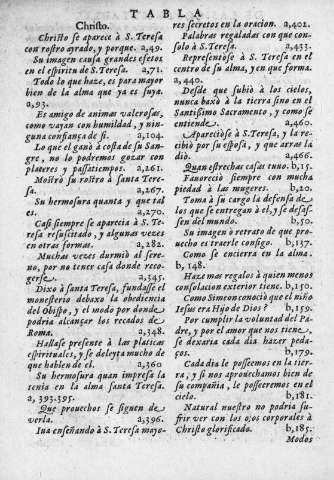 TABLA
Christo.
Christo se aparece à S. Teresa
con rostro ayrado, y porque. a,49.
Su imagen causa grandes efetos
en el espiritu de S. Teresa. a,71.
Todo lo que haze, es para mayor
bien de la alma que ya es suya.
a,93.
Es amigo de animas valerosas,
como vayan con humildad, y nin-
guna confiança de si. a,104.
Lo que ganò a costa de su San-
gre, no lo podremos gozar con
plateres y passatiempos. a,261.
Mostrò su rostro à santa Tere-
sa. a,267.
Su hermosura quanta y que tal
es. a,270.
Casi siempre se aparecia à S. Te-
resa resuscitado, y algunas vezes
en otras formas. a,282.
Muchas vezes durmiò al sere-
no, por no tener casa donde reco-
gerse. a,345.
Dixo à santa Teresa, fundasse el
monesterio debaxo la obediencia
del Obispo, y el modo por donde
podria alcançar los recados de
Roma. a,348.
Hallase presente à las platicas
espirituales, y se deleyta mucho de
que hablen de el. a,360
Su hermosura quan impresa la
tenia en la alma santa Teresa.
a, 393.395.
Que prouechos se siguen de
verla. a,396.
Iua enseñando à S. Teresa mayo-
res secretos en la oracion. a,402.
Palabras regaladas con que con-
solò à S. Teresa. a,433.
Representose à S. Teresa en el
centro de su alma, y en que forma.
a,440.
Desde que subiò à los cielos,
nunca baxò à la tierra sino en el
Santissimo Sacramento, y como se
entiende. a,460.
Apareciose à S. Teresa, y la re-
cibiò por su esposa, y que arras la
diò. a,466.
Quan estrechas casas tuuo. b,15.
Fauoreciò siempre con mucha
piedad à las mugeres. b,20.
Toma à su cargo la defensa de
los que se entregan à el, y se desas-
sen del mundo. b,50.
Su imagen ò retrato de que pro-
uecho es traerle consigo. b,137.
Como se encierra en la alma.
b, 148.
Haze mas regalos à quien menos
consolacion exterior tiene. b,150.
Como Simeon conociò que el niño
Iesus era Hijo de Dios? b,159.
Por cumplir la voluntad del Pa-
dre, y por el amor que nos tiene,
se dexaria cada dia hazer peda-
ços. b,179.
Cada dia le posseemos en la tier-
ra, y si nos aprouechamos bien de
su compañia, le posseeremos en el
cielo. b,181.
Natural nuestro no podria su-
frir ver con los ojos corporales à
Christo glorificado. b,185.
Modos